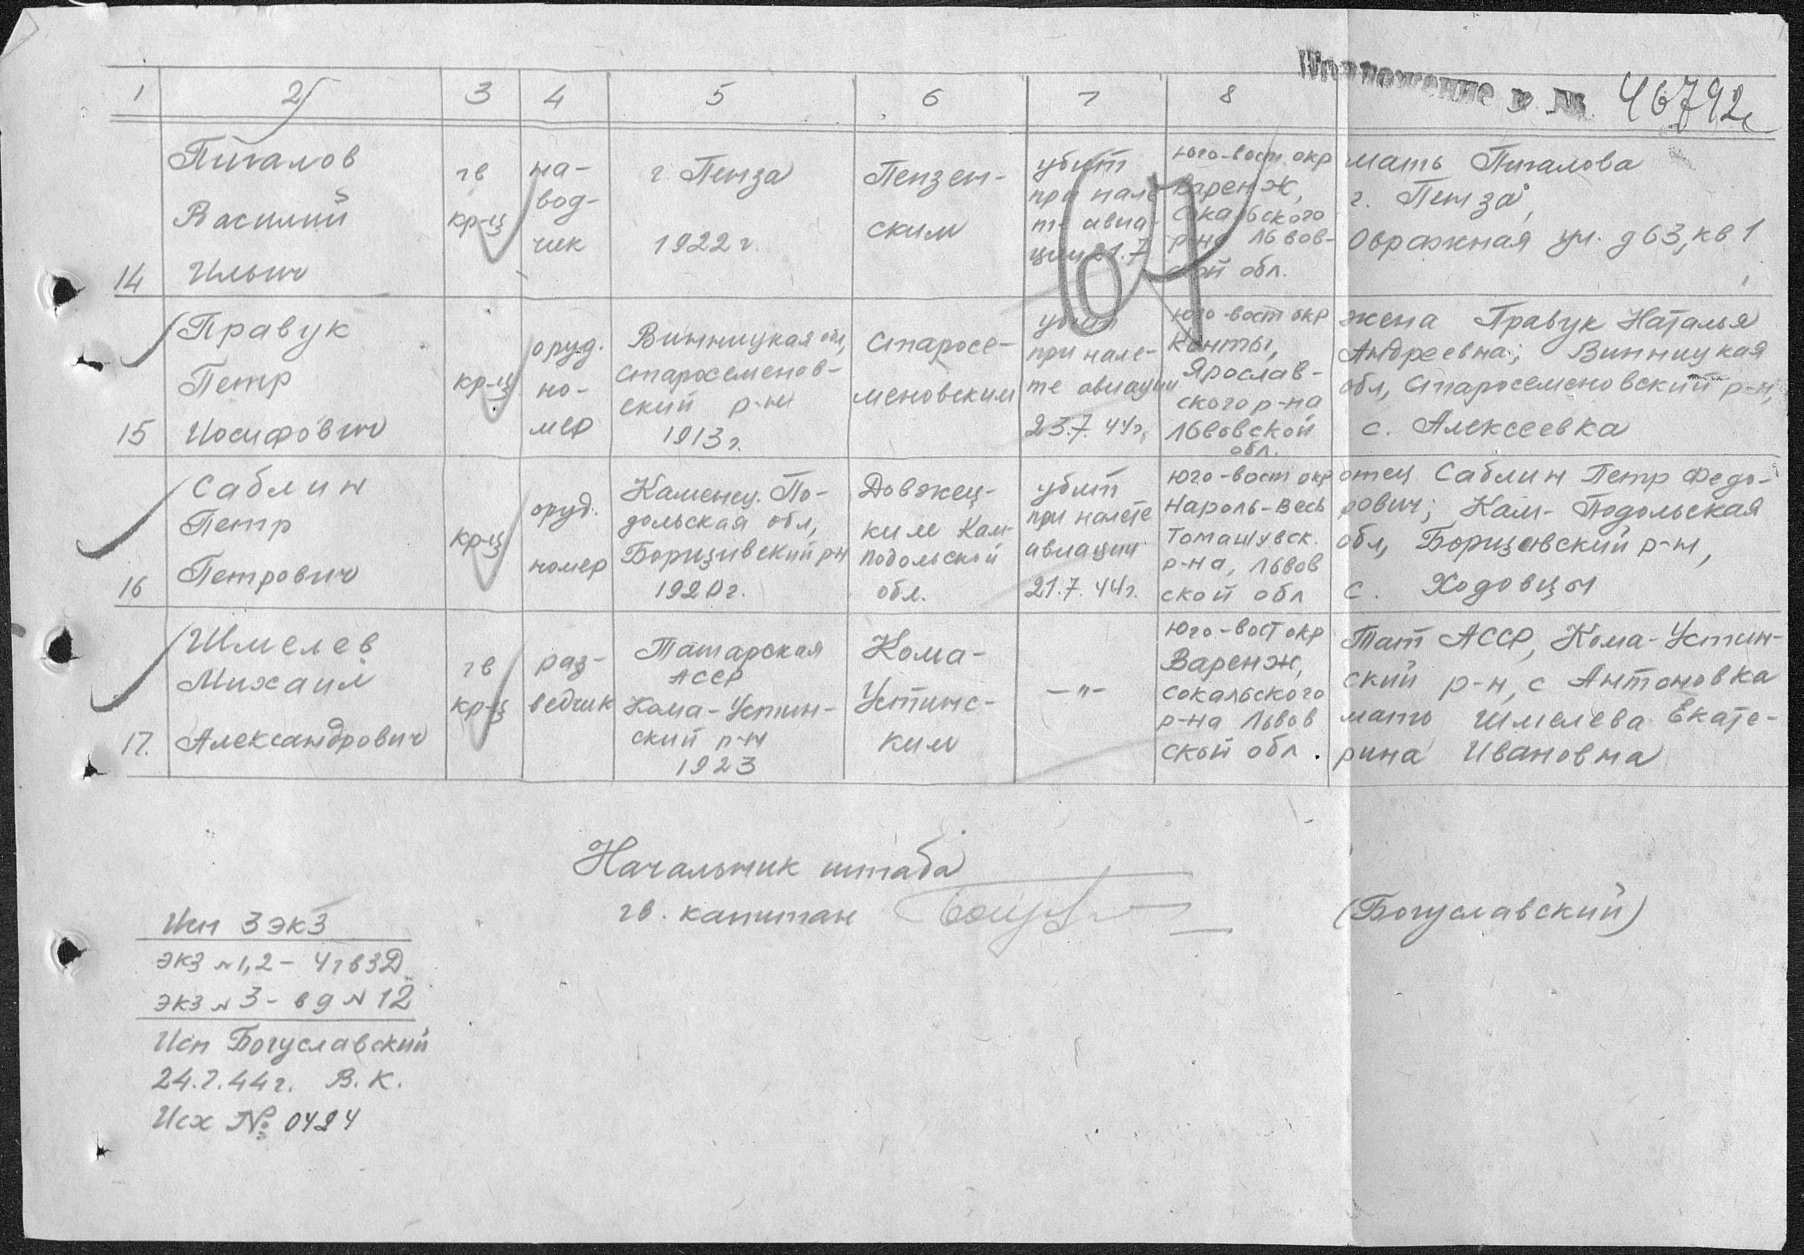 Приложение к № 46792с
1 2 3 4 5 6 7 8
14
Пигалов
Василий
Ильич
гв
кр-ц
на-
вод-
чик
г. Пенза
1922 г.
Пензен-
ским
убит
при нале-
те авиа-
ции 21.7
юго-вост. окр
Варенж,
Сокальского
р-на Львов-
ской обл.
мать Пигалова
г. Пенза,
Овражная ул. д 63, кв 1
67
15
Правук
Петр
Иосифович
кр-ц
оруд.
но-
мер
Винницкая обл,
Старосеменов-
ский р-н
1913 г.
Старосе-
меновским
убит
при нале-
те авиации
23.7.44 г,
юго-вост окр
Конты,
Ярослав-
ского р-на
Львовской
обл.
жена Правук Наталья
Андреевна; Винницкая
обл, Старосеменовский р-н,
с. Алексеевка
16
Саблин
Петр
Петрович
кр-ц
оруд.
номер
Каменец. По-
дольская обл,
Борщивский рн
1920 г.
Довжец-
ким Кам-
подольской
обл.
убит
при налете
авиации
21.7.44 г.
Юго-вост окр
Нароль-Весь
Томашувск.
р-на, Львов
ской обл
отец Саблин Петр Федо-
рович; Кам-Подольская
обл, Борщевский р-н,
с. Ходовцы
17.
Шмелев
Михаил
Александрович
гв
кр-ц
раз-
ведчик
Татарская
АССР
Кама-Устин-
ский р-н
1923
Кама-
Устинс-
ким
—"—
Юго-вост окр
Варенж,
Сокальского
р-на Львов
ской обл.
Тат АССР, Кама-Устин-
ский р-н, с Антоновка
мать Шмелева Екате-
рина Ивановна
Начальник штаба
гв. капитан
(Богуславский)
Исп 3 экз
экз №1,2 - 4 гв ЗД
экз № 3 - в д № 12
Исп Богуславский
24.7.44 г. В.К.
Исх № 0424